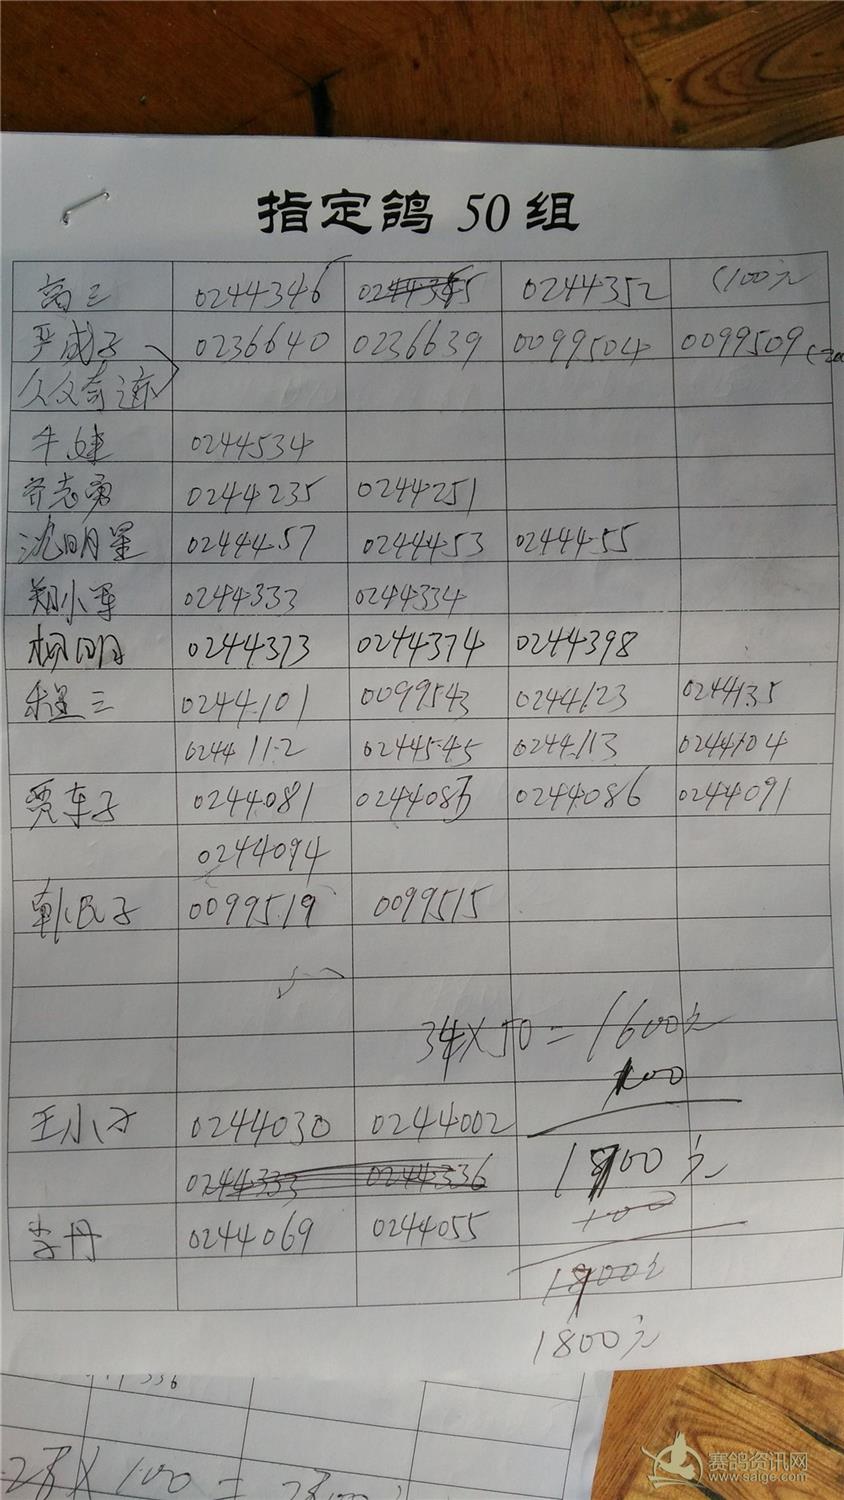 指定鸽 50 组
高三 0244346 0244345 0244352 (100元
严成子 0236640 0236639 0099504 0099509
众义奇迹
牛建 0244534
齐志勇 0244235 0244251
沈明星 0244457 0244453 0244455
郑小军 0244333 0244334
柳明 0244373 0244374 0244398
程三 0244101 0099543 0244123 0244135
0244112 0244545 0244113 0244104
贾车子 0244081 0244085 0244086 0244091
0244094
韩民子 0099519 0099515
34×50=1600元
100
王小子 0244030 0244002
1800元
0244333 0244336
100
李丹 0244069 0244055
1800元
1800元
336
28×100=
赛鸽资讯网
www.saige.com